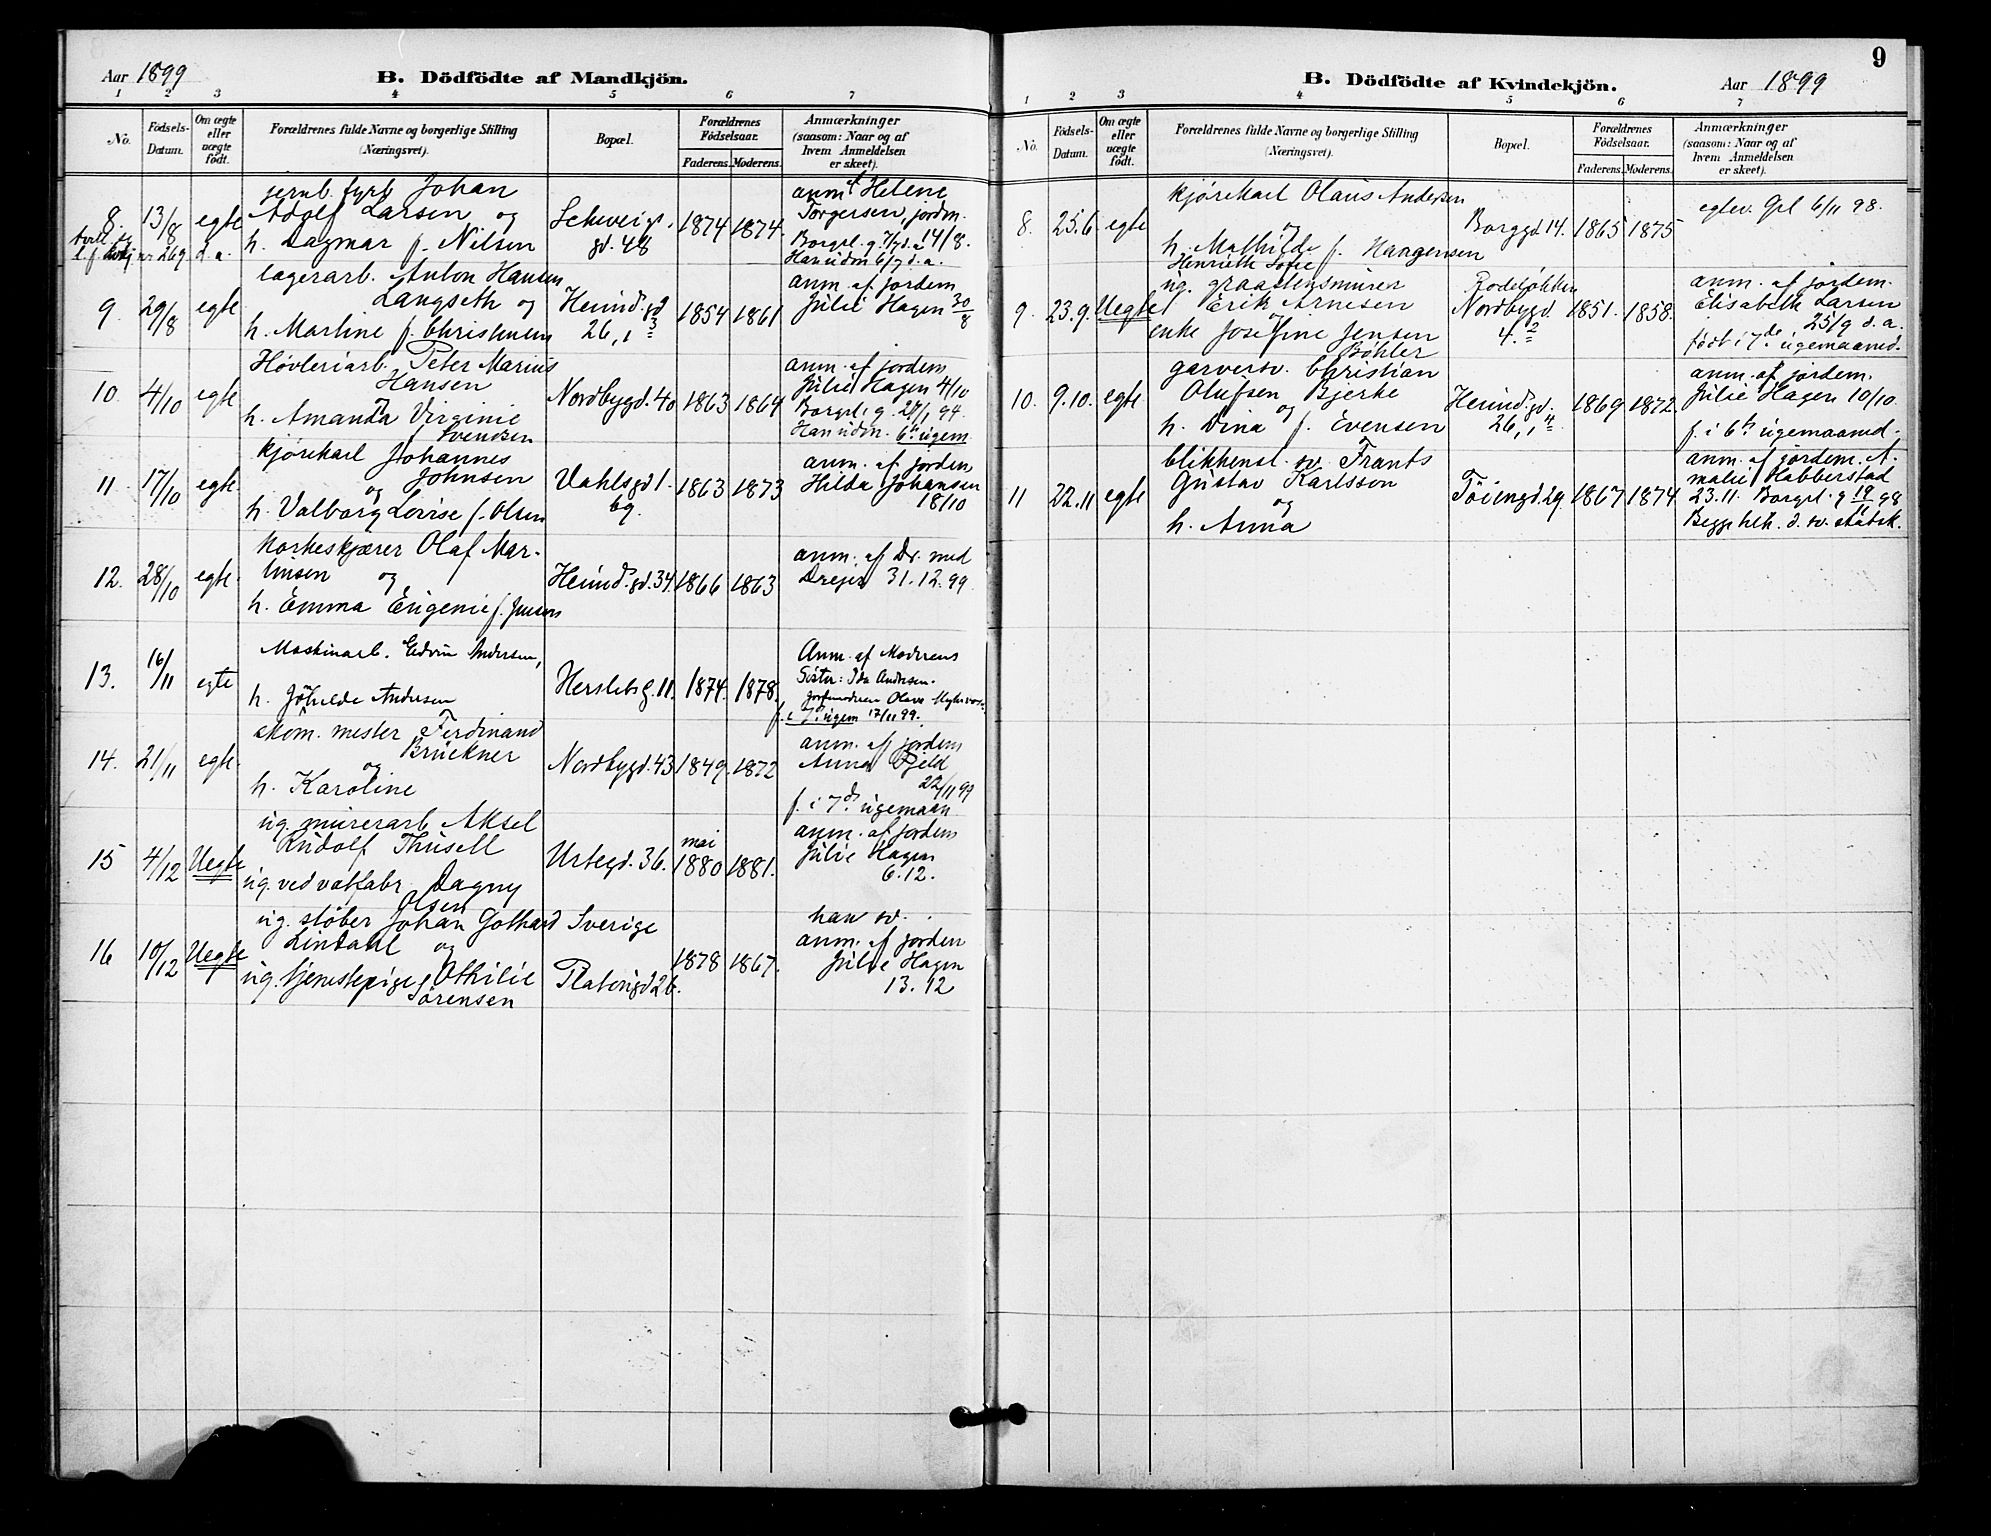 Aar 1899
B. Dödfödte af Mandkjön.
1 2 3 4 5 6 7
No.
Födsels-Datum.
Om ægte eller uægte födt.
Forældrenes fulde Navne og borgerlige Stilling
(Næringsvei).
Bopæl.
Forældrenes Födselsaar.
Faderens. Moderens.
Anmærkninger
(saasom: Naar og af
hvem Anmeldelsen
er skeet).
8. 13/8 egte
jernb. fyrb Johan
Adolf Larsen og
h. Dagmar f. Nilsen
Schweigs.
gd. 48
1874 1874
anm. f Helene
Torgersen, jordm.
14/8.
9. 29/8 egte
lagerarb. Anton Hansen
Langseth og
h. Martine f. Christensen
Heimd. gd
26, 1
1854 1861
anm. af jordem
Julie Hagen 30/8
10. 4/10 egte
Høvleriarb. Peter Marius
Hansen
h. Amanda Virginie
f. Svendsen
Nordbygd. 40
1863 1869
anm. af jordem
Julie Hagen 4/10
Borgsl. g. 27/1 94.
Han udm. 6te ugem
11 17/10 egte
kjørekarl Johannes
Johnsen
og
h. Valborg Lovise f. Olsen
Vahlsgd 1.
bg.
1863 1873
anm. af jordem
Hilda Johansen
18/10
12. 28/10 egte
Korkeskjærer Olaf Mar-
tinsen og
h. Emma Eugenie f. Jensen
Heimd. gd. 34.
1866 1863
anm. af Dr. med
Drejer 31.12.99
13. 16/11 egte
Maskinarb. Edvin Andersen,
h. Gøhilde Andersen
Herslebsg. 11.
1874. 1878.
Anm. af Moderens
Søster: Ida Andersen.
f. i 7. ugem 17/11 99.
14. 21/11 egte
skom. mester Ferdinand
Brückner
og
h. Karoline
Nordbygd. 43
1849. 1872
anm. af jordem
Anna Fjeld
22/11 99
f. i 7de ugemaan
15 4/12 Uegte
ug. murerarb Aksel
Rudolf Thusell
ug. ved vatfabr. Dagny
Olsen
Urtegd. 36.
mai
1880 1881.
anm. af jordem
Julie Hagen
6.12.
16 10/12 Uegte
ug. støber Johan Gothard
Lindahl og
ug. tjenestepige Othilie
Sørensen
Sverige
Platougd 26.
1878 1867.
han sv.
anm. af jordem
Julie Hagen
13.12
9
B. Dödfödte af Kvindekjön.
Aar 1899
1 2 3 4 5 6 7
No.
Födsels-Datum.
Om ægte eller uægte födt.
Forældrenes fulde Navne og borgerlige Stilling
(Næringsvei).
Bopæl.
Forældrenes Födselsaar.
Faderens. Moderens.
Anmærkninger
(saasom: Naar og af
hvem Anmeldelsen
er skeet).
8. 25.6. egte
kjørekarl Olaus Andersen
og
h. Mathilde f. Haagensen
Borggd 14.
1865 1875
egtev. Gpl 6/11 98.
9 23.9. Uegte
Henriette Sofie
ug. graastensmurer
Erik Arnesen
og
enke Josefine Jensen
Bøhler
Rodeløkken
Nordbygd
4.2
1851. 1858.
anm. af jordem.
Elisabeth Larsen
25/9 d. a.
født i 7de ugemaaned.
10. 9.10. egte
garversv. Christian
Olufsen Bjerke
og
h. Dina f. Evensen
Heimd. gd.
26, 1
1869 1872.
anm. af jordem.
Julie Hagen 10/10.
f. i 6te ugemaaned.
11 22.11 egte
blikkensl. sv. Frants
Gustav Karlsson
og
h. Anna
Tøiengd. 29.
1867 1874
anm. af jordem. A-
malie Habberstad
23.11. Borgsl. g 19/11 98
Begge hth. d. sv. statsk.